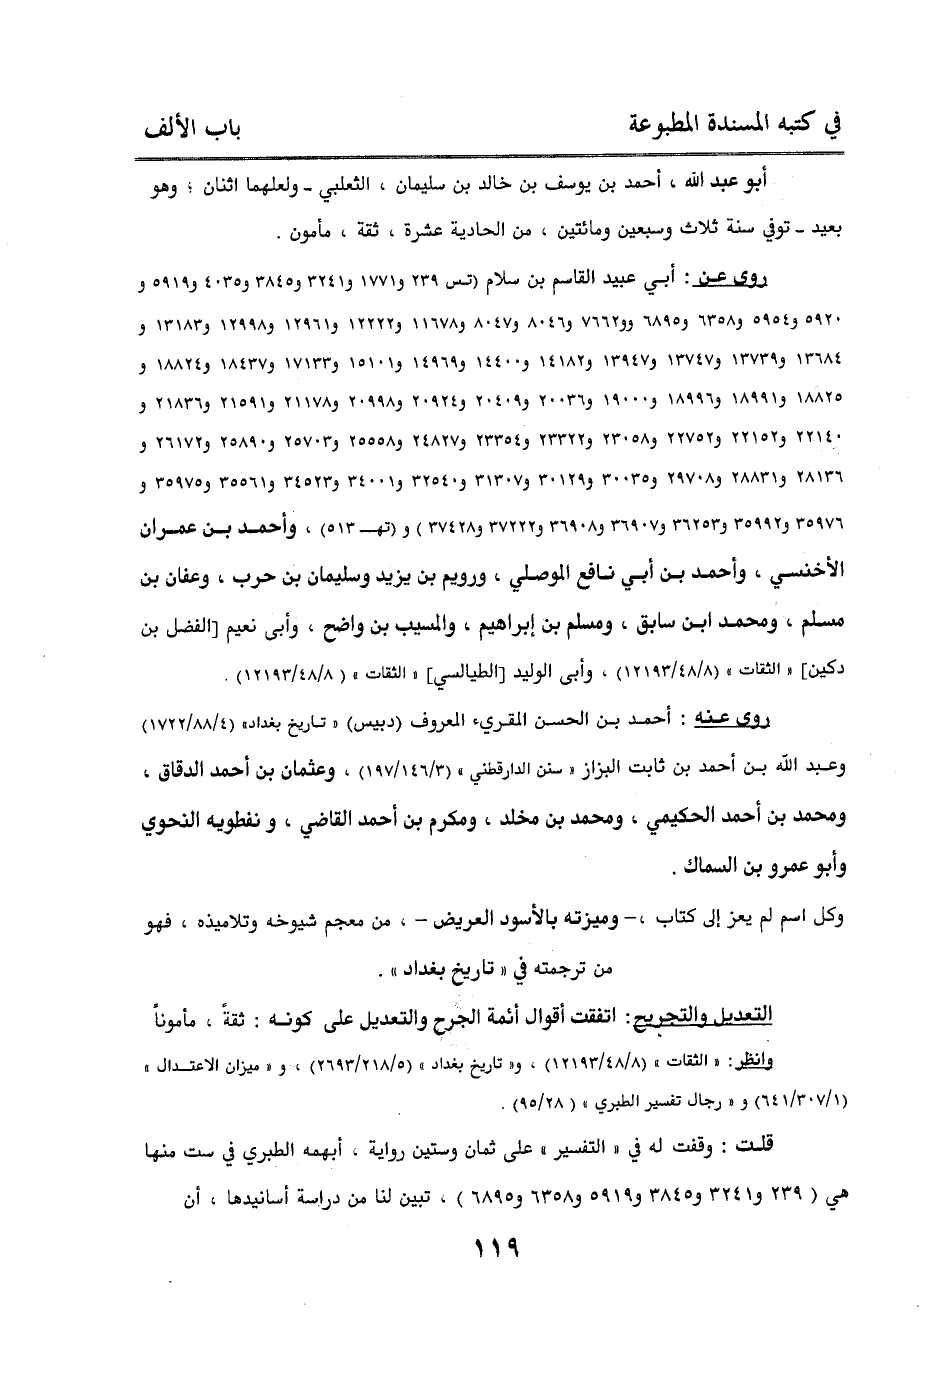 في كتبه المسندة المطبوعة باب الألف
أبو عبد الله ، أحمد بن يوسف بن خالد بن سليمان ، الثعلبي – ولعلهما اثنان ؛ وهو
بعيد – توفي سنة ثلاث وسبعين ومائتين ، من الحادية عشرة ، ثقة ، مأمون .
روى عن : أبي عبيد القاسم بن سلام (تس ٢٣٩ و١٧٧١ و٣٢٤١ و٣٨٤٥ و٤٠٣٥ و٥٩١٩ و
٥٩٢٠ و٥٩٥٤ و٦٣٥٨ و٦٨٩٥ وو٧٦٦٢ و٨٠٤٦ و٨٠٤٧ و١١٦٧٨ و١٢٢٢٢ و١٢٩٦١ و١٢٩٩٨ و١٣١٨٣ و
١٣٦٨٤ و١٣٧٣٩ و١٣٧٤٧ و١٣٩٤٧ و١٤١٨٢ و١٤٤٠٠ و١٤٩٦٩ و١٥١٠١ و١٧١٣٣ و١٨٤٣٧ و١٨٨٢٤ و
١٨٨٢٥ و١٨٩٩١ و١٨٩٩٦ و١٩٠٠٠ و٢٠٠٣٦ و٢٠٤٠٩ و٢٠٩٢٤ و٢٠٩٩٨ و٢١١٧٨ و٢١٥٩١ و٢١٨٣٦ و
٢٢١٤٠ و٢٢١٥٢ و٢٢٧٥٢ و٢٣٠٥٨ و٢٣٣٢٢ و٢٣٣٥٤ و٢٤٨٢٧ و٢٥٥٥٨ و٢٥٧٠٣ و٢٥٨٩٠ و٢٦١٧٢ و
٢٨١٣٦ و٢٨٨٣١ و٢٩٧٠٨ و٣٠٠٣٥ و٣٠١٢٩ و٣١٣٠٧ و٣٢٥٤٠ و٣٤٠٠١ و٣٤٥٢٣ و٣٥٥٦١ و٣٥٩٧٥ و
٣٥٩٧٦ و٣٥٩٩٢ و٣٦٢٥٣ و٣٦٩٠٧ و٣٦٩٠٨ و٣٧٢٢٢ و٣٧٤٢٨ ) و (تهـ ٥١٣) ، وأحمد بن عمران
الأخنسي ، وأحمد بن أبي نافع الموصلي ، ورويم بن يزيد وسليمان بن حرب ، وعفان بن
مسلم ، ومحمد ابن سابق ، ومسلم بن إبراهيم ، والمسيب بن واضح ، وأبى نعيم [الفضل بن
دكين] « الثقات » (١٢١٩٣/٤٨/٨) ، وأبى الوليد [الطيالسي] « الثقات » ( ١٢١٩٣/٤٨/٨) .
روى عنه : أحمد بن الحسن المقريء المعروف (دبيس) « تاريخ بغداد» (١٧٢٢/٨٨/٤)
وعبد الله بن أحمد بن ثابت البزاز « سنن الدارقطني » (١٩٧/١٤٦/٣) ، وعثمان بن أحمد الدقاق ،
ومحمد بن أحمد الحكيمي ، ومحمد بن مخلد ، ومكرم بن أحمد القاضي ، و نفطويه النحوي
وأبو عمرو بن السماك .
وكل اسم لم يعز إلى كتاب ،– وميزته بالأسود العريض – ، من معجم شيوخه وتلاميذه ، فهو
من ترجمته في « تاريخ بغداد» .
التعديل والتجريح : اتفقت أقوال أئمة الجرح والتعديل على كونه : ثقةً ، مأموناً
وانظر : « الثقات » (١٢١٩٣/٤٨/٨) ، و« تاريخ بغداد » (٢٦٩٣/٢١٨/٥) ، و « ميزان الاعتدال »
(٦٤١/٣٠٧/١) و « رجال تفسير الطبري » ( ٩٥/٢٨) .
قلت : وقفت له في « التفسير » على ثمان وستين رواية ، أبهمه الطبري في ست منها
هي ( ٢٣٩ و٣٢٤١ و٣٨٤٥ و٥٩١٩ و٦٣٥٨ و٦٨٩٥ ) ، تبين لنا من دراسة أسانيدها ، أن
١١٩